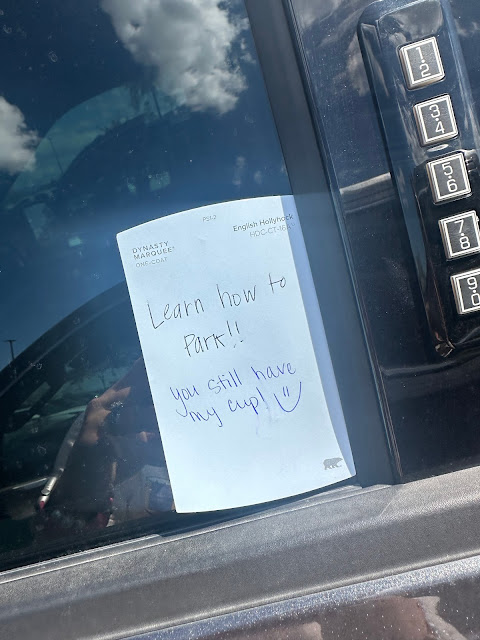 PS1-2
DYNASTY
MARQUEE®
ONE-COAT
English Hollyhock
HDC-CT-16A
Learn how to
Park!!
you still have
my cup!
1·2
3·4
5·6
7·8
9·0